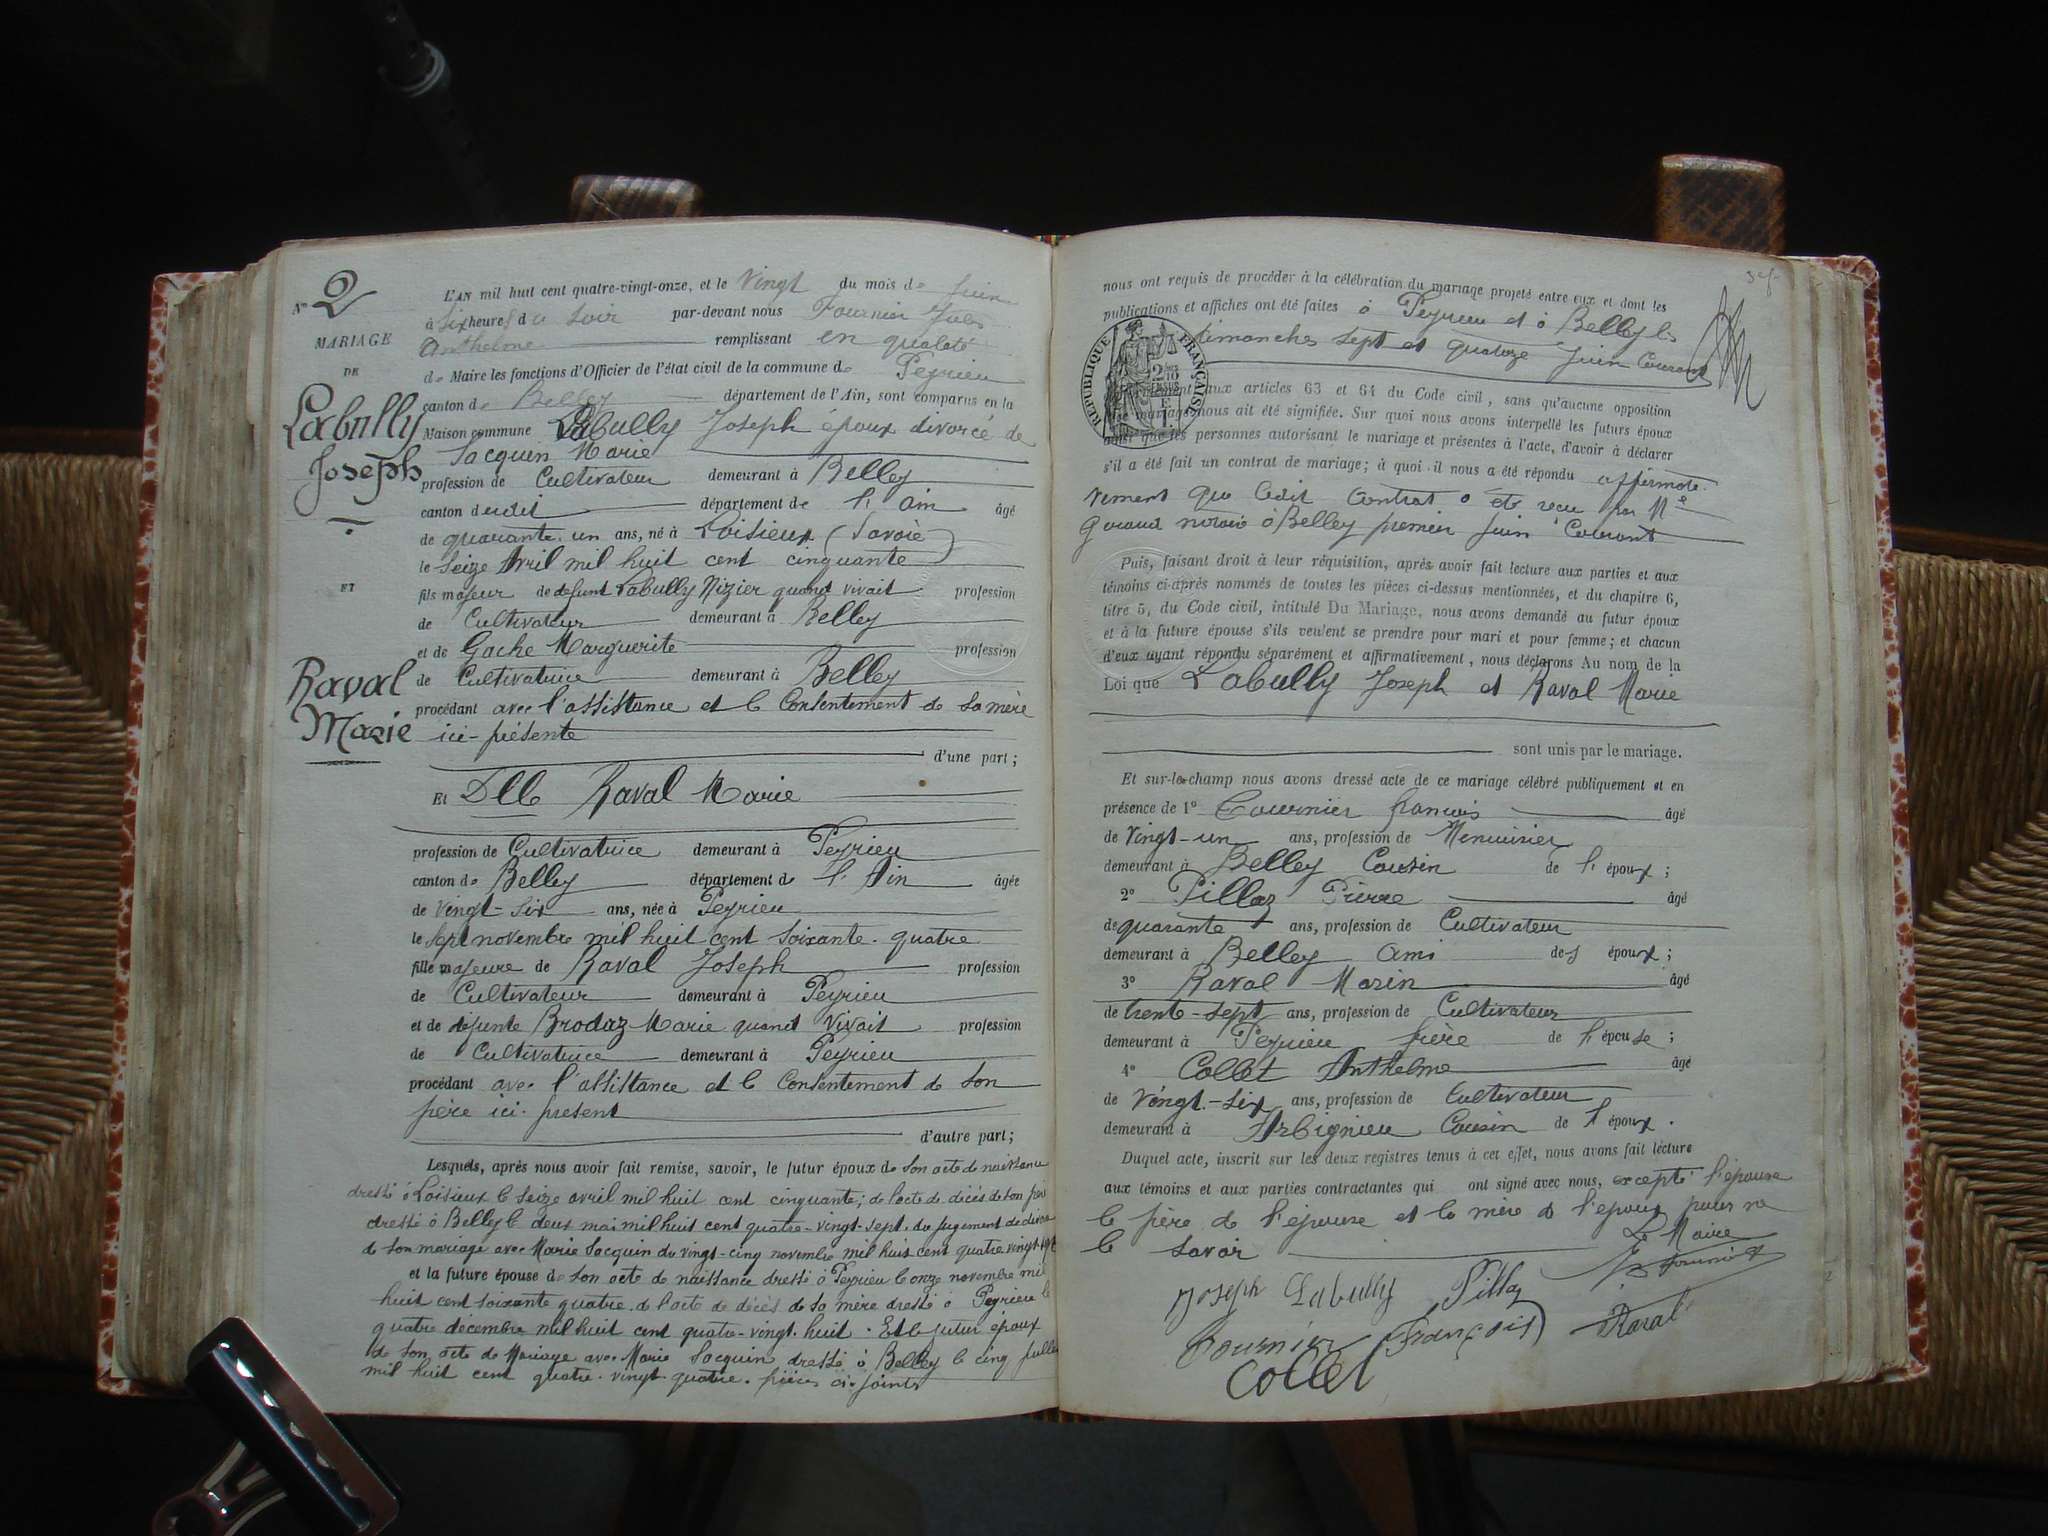 N° 2
MARIAGE
DE
Labully
Joseph
ET
Raval
Marie
L'AN mil huit cent quatre-vingt-onze, et le Vingt du mois de Juin
à Six heures du Soir par-devant nous Fournier Jules
Anthelme remplissant en qualité
de Maire les fonctions d'Officier de l'état civil de la commune de Peyrieu
canton de Belley département de l'Ain, sont comparus en la
Maison commune Labully Joseph époux divorcé de
Jacquin Marie
profession de Cultivateur demeurant à Belley
canton dudit département de l'Ain âgé
de quarante-un ans, né à Loisieux (Savoie)
le Seize Avril mil huit cent cinquante
fils majeur de défunt Labully Nizier quand vivait profession
de Cultivateur demeurant à Belley
et de Gache Marguerite profession
de Cultivatrice demeurant à Belley
procédant avec l'assistance et le Consentement de sa mère
ici-présente
d'une part;
Et Dlle Raval Marie
profession de Cultivatrice demeurant à Peyrieu
canton de Belley département de l'Ain âgée
de Vingt-Six ans, née à Peyrieu
le Sept novembre mil huit cent Soixante-quatre
fille majeure de Raval Joseph profession
de Cultivateur demeurant à Peyrieu
et de défunte Brodaz Marie quand Vivait profession
de Cultivatrice demeurant à Peyrieu
procédant avec l'assistance et le Consentement de Son
père ici-présent
d'autre part;
Lesquels, après nous avoir fait remise, savoir, le futur époux de Son acte de naissance
dressé à Loisieux le Seize avril mil huit cent cinquante; de l'acte de décès de son père
dressé à Belley le deux mai mil huit cent quatre-vingt-sept du jugement de divorce
de son mariage avec Marie Jacquin du vingt-cinq novembre mil huit cent quatre vingt
et la future épouse de Son acte de naissance dressé à Peyrieu le onze novembre mil
huit cent Soixante quatre de l'acte de décès de sa mère dressé à Peyrieu le
quatre décembre mil huit cent quatre-vingt-huit. Et le futur époux
de Son acte de Mariage avec Marie Jacquin dressé à Belley le cinq juillet
mil huit cent quatre-vingt-quatre. pièces ci-joints
nous ont requis de procéder à la célébration du mariage projeté entre eux et dont les
publications et affiches ont été faites à Peyrieu et à Belley les
dimanches sept et quatorze Juin Courant
RÉPUBLIQUE FRANÇAISE
aux articles 63 et 64 du Code civil, sans qu'aucune opposition
mariage nous ait été signifiée. Sur quoi nous avons interpellé les futurs époux
ainsi que les personnes autorisant le mariage et présentes à l'acte, d'avoir à déclarer
s'il a été fait un contrat de mariage; à quoi il nous a été répondu affirmati-
vement que ledit Contrat a été reçu par Me
notaire à Belley premier Juin Courant
Puis, faisant droit à leur réquisition, après avoir fait lecture aux parties et aux
témoins ci-après nommés de toutes les pièces ci-dessus mentionnées, et du chapitre 6,
titre 5, du Code civil, intitulé Du Mariage, nous avons demandé au futur époux
et à la future épouse s'ils veulent se prendre pour mari et pour femme; et chacun
d'eux ayant répondu séparément et affirmativement, nous déclarons Au nom de la
Loi que Labully Joseph et Raval Marie
sont unis par le mariage.
Et sur-le-champ nous avons dressé acte de ce mariage célébré publiquement et en
présence de 1° Fournier François âgé
de Vingt-un ans, profession de Menuisier
demeurant à Belley Cousin de l'époux;
2° Pillaz Pierre âgé
de quarante ans, profession de Cultivateur
demeurant à Belley Ami des époux;
3° Raval Marin âgé
de trente-sept ans, profession de Cultivateur
demeurant à Peyrieu frère de l'épouse;
4° Collet Anthelme âgé
de Vingt-six ans, profession de Cultivateur
demeurant à Arbignieu Cousin de l'époux.
Duquel acte, inscrit sur les deux registres tenus à cet effet, nous avons fait lecture
aux témoins et aux parties contractantes qui ont signé avec nous, excepté l'épouse
le père de l'épouse et la mère de l'époux pour ne
le savoir
Le Maire
Joseph Labully Pillaz
Fournier François Raval
Collet